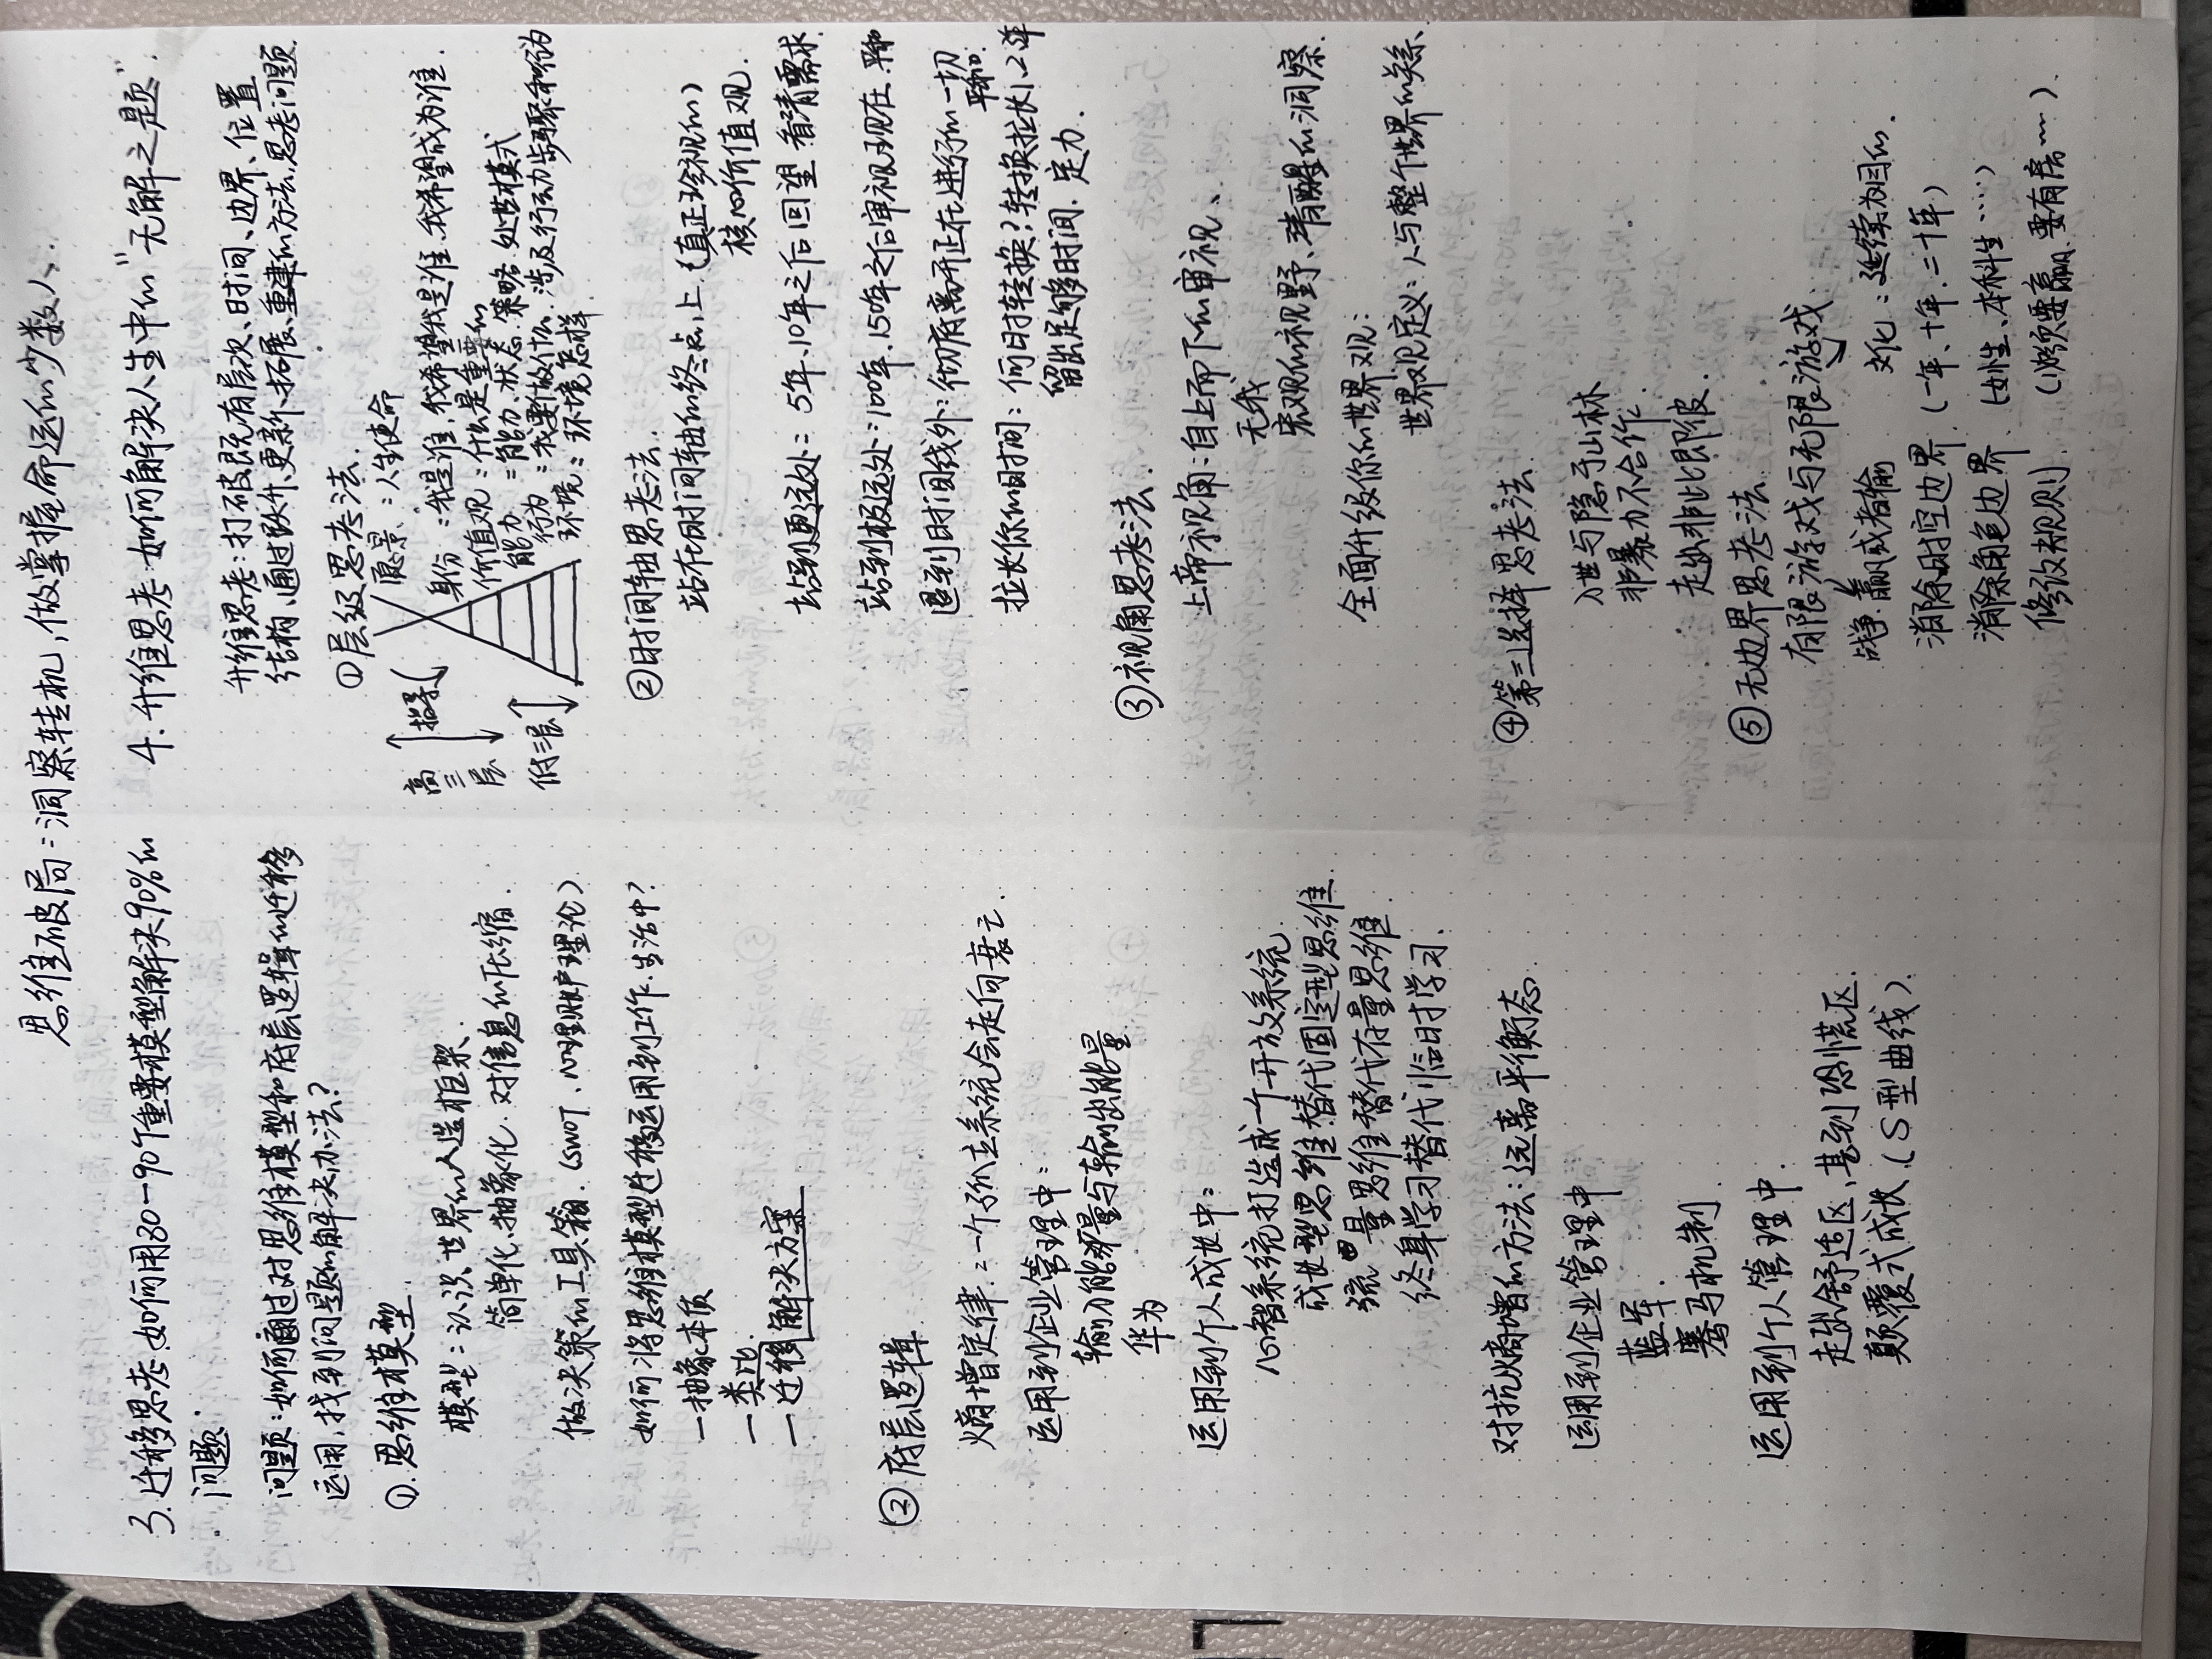 思维破局：洞察转机，做掌握命运的少数人.
3. 迁移思考：如何用80-90个重要模型解决90%的
问题.
问题：如何通过对思维模型和底层逻辑的迁移
运用，找到问题的解决办法？
①. 思维模型
模型：认识世界的人造框架、
简单化、抽象化、对信息的压缩.
做决策的工具箱.（SWOT、心理账户理论）
如何将思维模型迁移运用到工作.生活中？
- 抽象本质
- 类比
- 迁移解决方案
② 底层逻辑
熵增定律：一个孤立系统会走向衰亡.
运用到企业管理中：
输入能量与输出能量
华为
运用到个人成长中：
心智系统打造成一个开放系统
成长型思维替代固定型思维
流量思维替代存量思维
终身学习替代临时学习.
对抗熵增的方法：远离平衡态
运用到企业管理中
蓝军.
赛马机制
运用到个人管理中
走出舒适区、甚到恐慌区.
颠覆式成长.（S型曲线）
4. 升维思考：如何解决人生中的“无解之题”.
升维思考：打破既有层次、时间、边界、位置
结构、通过跃升、更新、拓展、重建的方法，思考问题
① 层级思考法.
愿景：人生使命
身份：我是谁，我希望我是谁.我希望成为谁.
价值观：什么是重要的
能力：能力、状态.策略.处世模式
行为：我要做什么.涉及行动步骤和行为
环境：环境怎样
高三层
指导
低三层
②时间轴思考法.
站在时间轴的终点上.（真正珍视的）
核心价值观.
站到更远处：5年、10年之后回望 看清需求
站到极远处：100年、150年之后审视现在.
退到时间线外：彻底离开正在进行的一切
拉长你的时间：何时转换？转换拉长1、2年
留出足够时间.定力.
③ 视角思考法.
上帝视角：自上而下的审视、
无我
宏观的视野、清醒的洞察.
全面升级你的世界观：
世界观定义：人与整个世界的关系、
④第三选择思考法
入世与隐于山林
非暴力不合作.
走出非此即彼.
⑤ 无边界思考法
有限游戏与无限游戏
战争.赢或者输
文化：延续为目的.
消除时空边界.（一年、十年.二十年）
消除角色边界（女性、本科生……）
修改规则（必须要赢、要有房……）